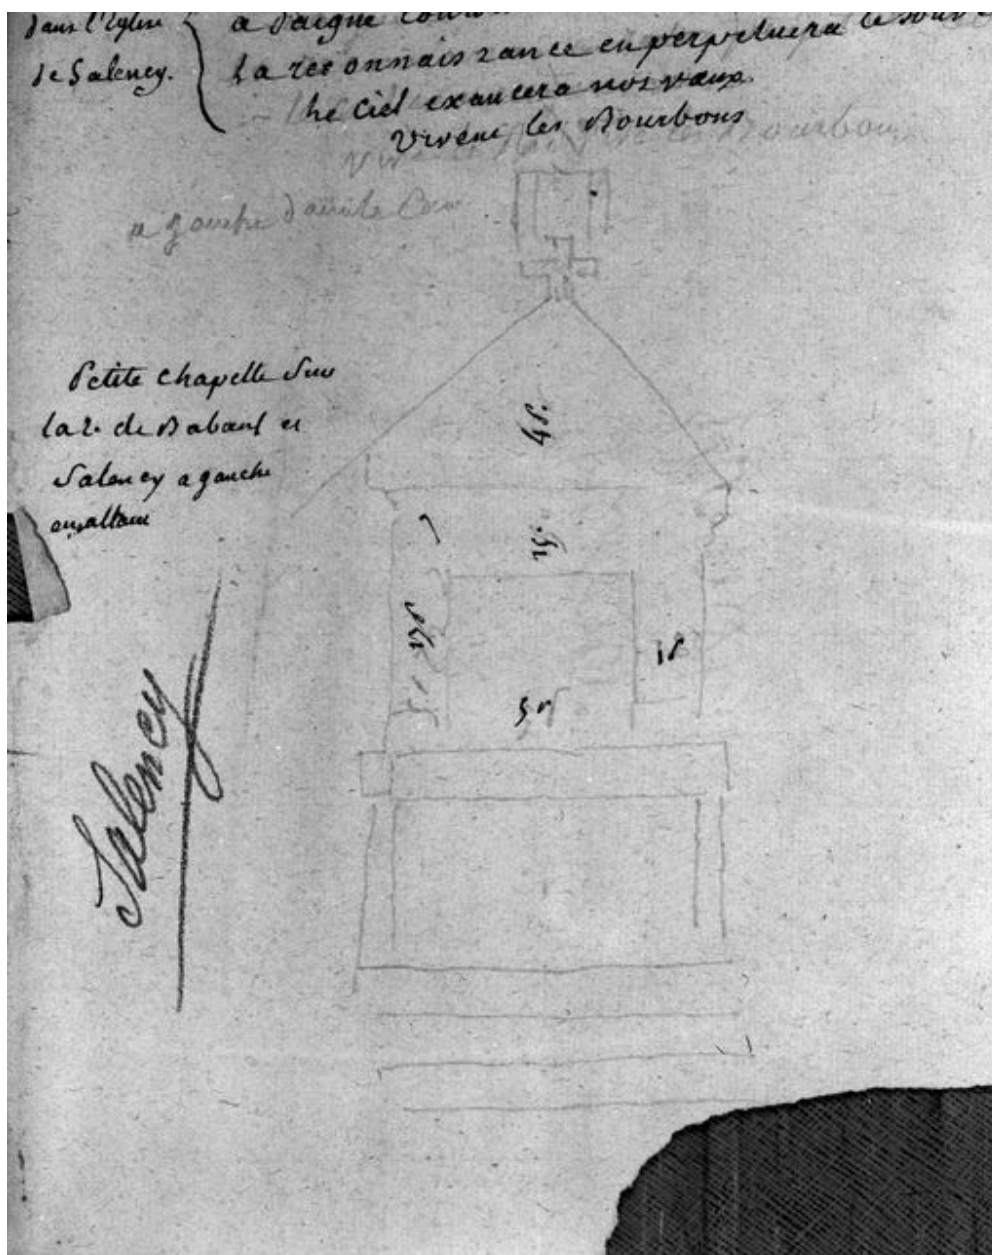 dans l'Eglise
de Salency.
a daigné
la reconnaissance en perpetuera le souve
Le Ciel exaucera nos vœux
Vivent les Bourbons
Bourbons
a gauche
Petite chapelle sur
la r. de Babœuf et
Salency a gauche
en allant
4 p.
1 p
5 p
Salency